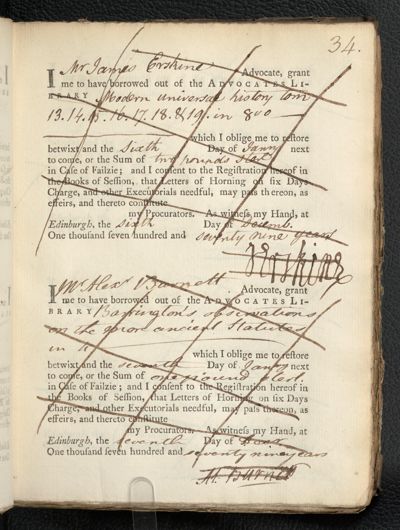 34.
I Mr James Erskine Advocate, grant
me to have borrowed out of the ADVOCATES LI-
BRARY Modern universal history tom
13.14.15.16.17.18.&19. in 8vo
which I oblige me to reſtore
betwixt and the Sixth Day of Janry next
to come, or the Sum of two pounds Sterl.
in Caſe of Failzie; and I conſent to the Regiſtration hereof in
the Books of Seſſion, that Letters of Horning on ſix Days
Charge, and other Executorials needful, may paſs thereon, as
effeirs, and thereto conſtitute
my Procurators. As witneſs my Hand, at
Edinburgh, the Sixth Day of Decemb.
One thouſand ſeven hundred and seventy nine years
Js Erskine
I Mr Alexr Burnett Advocate, grant
me to have borrowed out of the ADVOCATES LI-
BRARY Barrington's observations
on the more ancient Statutes
in 4
which I oblige me to reſtore
betwixt and the seventh Day of Janry next
to come, or the Sum of one pound Sterl.
in Caſe of Failzie; and I conſent to the Regiſtration hereof in
the Books of Seſſion, that Letters of Horning on ſix Days
Charge, and other Executorials needful, may paſs thereon, as
effeirs, and thereto conſtitute
my Procurators. As witneſs my Hand, at
Edinburgh, the seventh Day of
One thouſand ſeven hundred and seventy nine years
Al. Burnet